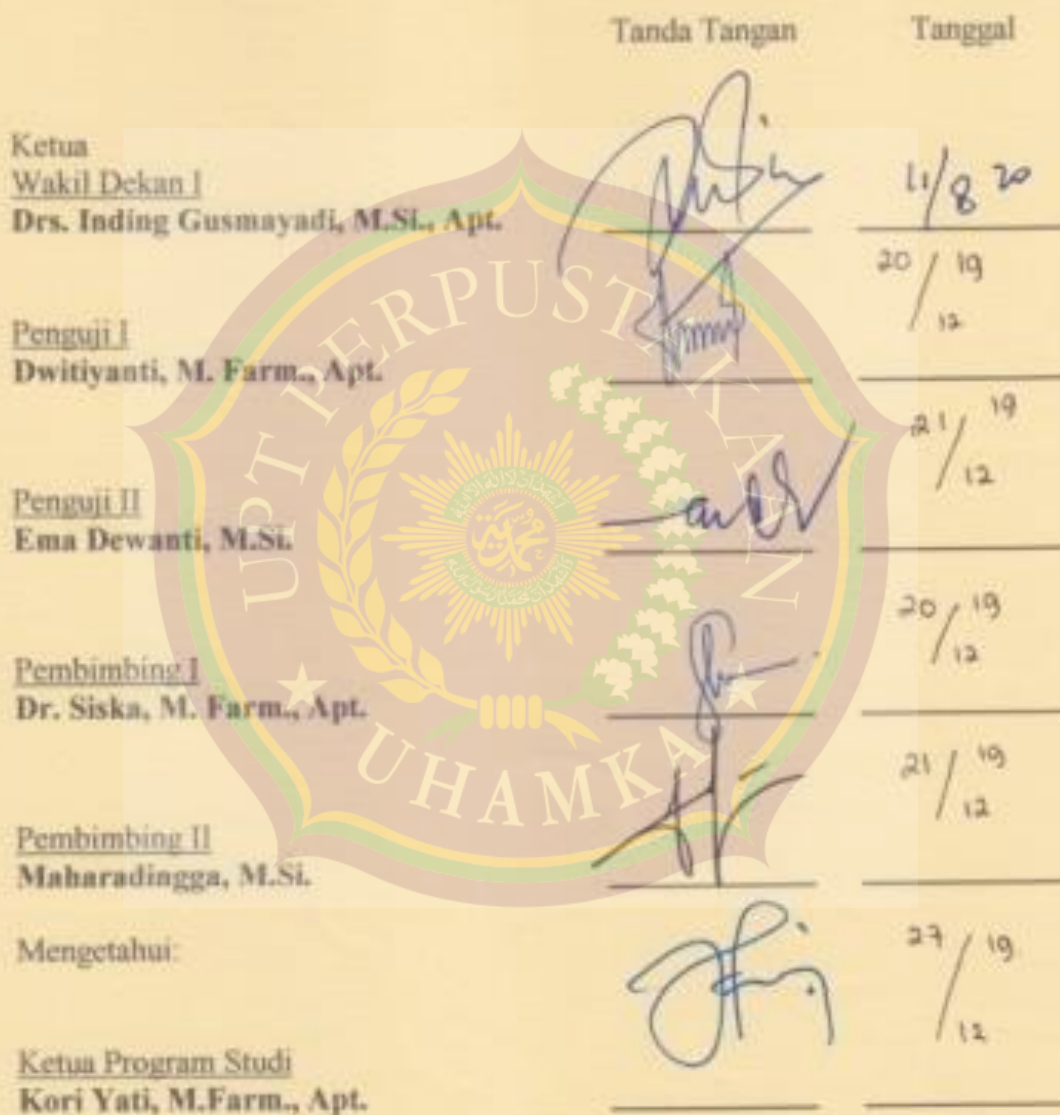 Tanda Tangan Tanggal
Ketua
Wakil Dekan I
Drs. Inding Gusmayadi, M.Si., Apt.
11/8 20
Penguji I
Dwitiyanti, M. Farm., Apt.
20/12 19
Penguji II
Ema Dewanti, M.Si.
21/12 19
Pembimbing I
Dr. Siska, M. Farm., Apt.
20/12 19
Pembimbing II
Maharadingga, M.Si.
21/12 19
Mengetahui:
Ketua Program Studi
Kori Yati, M.Farm., Apt.
27/12 19
UPT PERPUSTAKAAN
UHAMKA